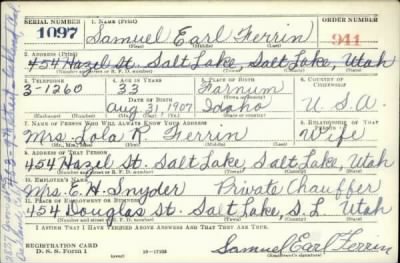 SERIAL NUMBER 1. NAME (Print) ORDER NUMBER
1097 Samuel Earl Ferrin 941
(First) (Middle) (Last)
2. ADDRESS (Print)
454 Hazel St. Salt Lake, Salt Lake, Utah
(Number and street or R. F. D. number) (Town) (County) (State)
3. TELEPHONE 4. AGE IN YEARS 5. PLACE OF BIRTH 6. COUNTRY OF CITIZENSHIP
3-1260 33 Farnum
DATE OF BIRTH (Town or county)
Aug 31 1907 Idaho U.S.A.
(Exchange) (Number) (Mo.) (Day) (Yr.) (State or country)
7. NAME OF PERSON WHO WILL ALWAYS KNOW YOUR ADDRESS 8. RELATIONSHIP OF THAT PERSON
Mrs. Lola R. Ferrin Wife
(Mr., Mrs., Miss) (First) (Middle) (Last)
9. ADDRESS OF THAT PERSON
454 Hazel St. Salt Lake, Salt Lake, Utah
(Number and street or R. F. D. number) (Town) (County) (State)
10. EMPLOYER'S NAME
Mrs. E. H. Snyder Private Chauffer
11. PLACE OF EMPLOYMENT OR BUSINESS
454 Douglas St. Salt Lake, S. L. Utah
(Number and street or R. F. D. number) (Town) (County) (State)
I AFFIRM THAT I HAVE VERIFIED ABOVE ANSWERS AND THAT THEY ARE TRUE.
REGISTRATION CARD
D. S. S. Form 1 Samuel Earl Ferrin
(Registrant's signature)